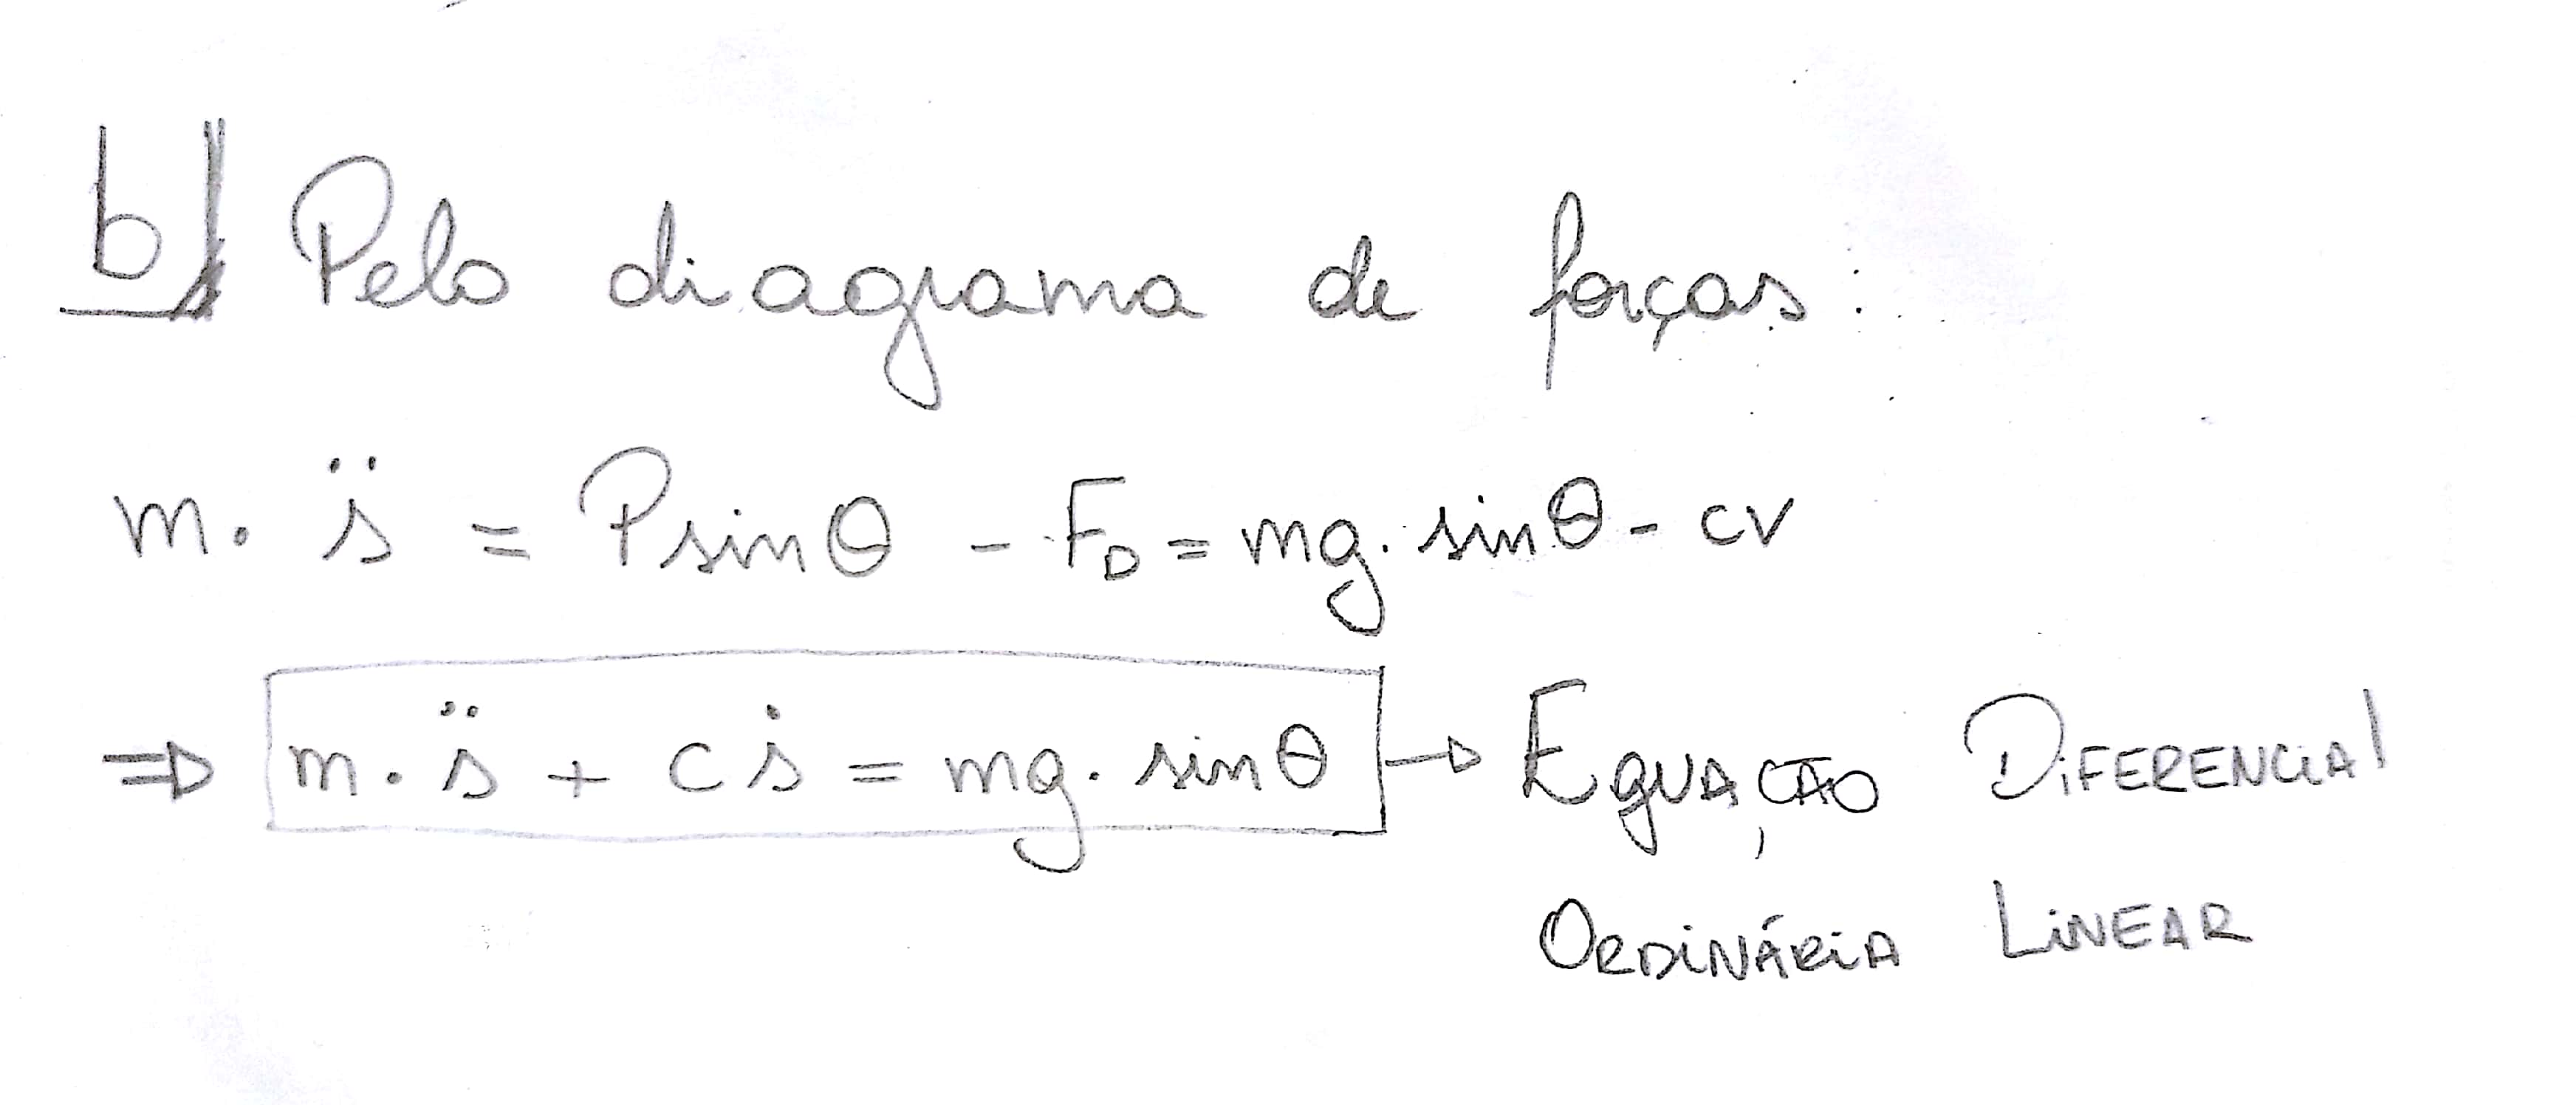 b) Pelo diagrama de forças:
m. s̈ = P sinθ - F_D = mg. sinθ - cv
⇒ m. s̈ + c ṡ = mg. sinθ → EqUAÇÃO DiFERENCiAl
ORDiNÁRiA LiNEAR